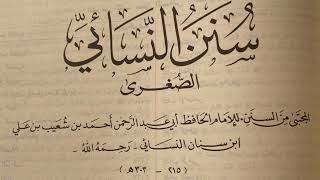 سُنَنُ النَّسَائِيِّ
الصُّغْرَىٰ
المجتبى مِنَ السنَنِ، للإمَام الحَافظ أبي عَبد الرَّحمن أحمَد بن شعَيب بن عَلي
ابن سنان النسائي - رَحِمَهُ اللهُ -
(٢١٥ - ٣٠٣هـ)